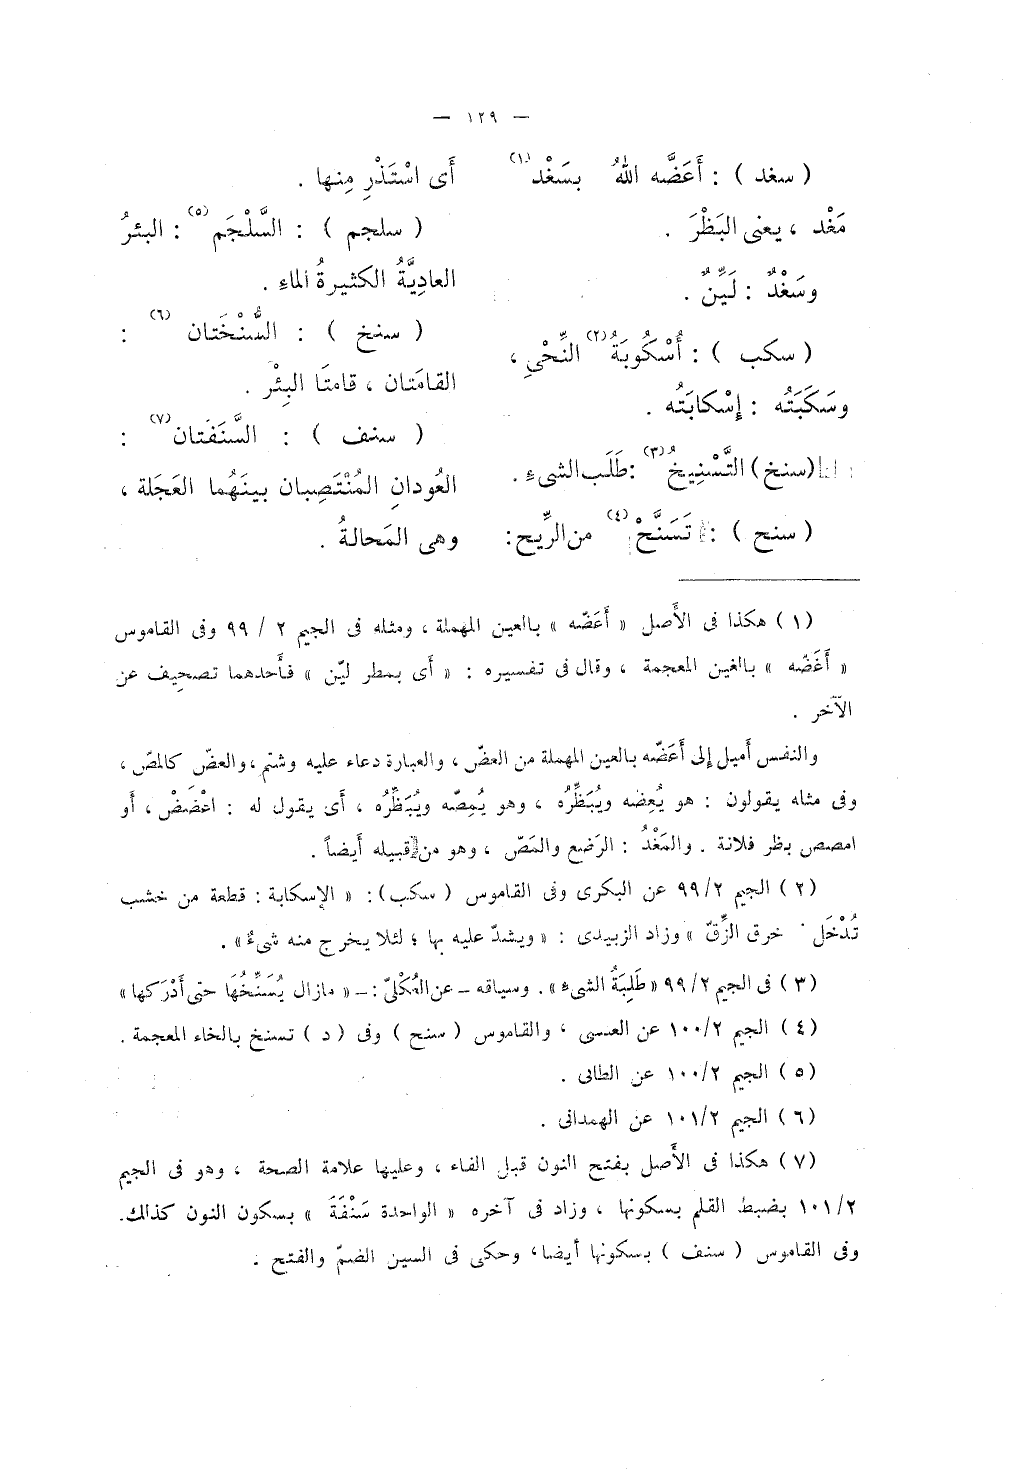 — ١٢٩ —
( سغد ) : أَعَضَّه اللهُ بسَغْد (١)
مَغْد ، يعنى البَظْرَ .
وسَغْدٌ : لَيِّنٌ .
( سكب ) : أُسْكُوبَةُ (٢) النِّحْىِ ،
وسَكَبَتُه : إِسْكابَتُه .
(سنخ) التَّسْنِيخُ (٣) : طَلَب الشىءِ .
( سنح ) : تَسَنَّحْ (٤) من الرِّيح :
أَى اسْتَذْرِ مِنها .
( سلجم ) : السَّلْجَم (٥) : البئرُ
العادِيَّةُ الكثيرةُ الماءِ .
( سنخ ) : السُّنْخَتان (٦) :
القامَتان ، قامتَا البِئْر .
( سنف ) : السَّنَفَتان (٧) :
العُودانِ المُنْتَصِبان بينَهُما العَجَلة ،
وهى المَحالةُ .
(١) هكذا فى الأَصل « أَعَضّه » بالعين المهملة ، ومثله فى الجيم ٢ / ٩٩ وفى القاموس
« أَغَضّه » بالغين المعجمة ، وقال فى تفسيره : « أى بمطر ليّن » فأَحدهما تصحيف عن
الآخر .
والنفس أَميل إلى أَعَضّه بالعين المهملة من العضّ ، والعبارة دعاء عليه وشتم ، والعضّ كالمصّ ،
وفى مثله يقولون : هو يُعِضه ويُبَظِّرُه ، وهو يُمِصّه ويُبَظِّرُه ، أَى يقول له : اعْضَضْ ، أَو
امصص بظر فلانة . والمَغْدُ : الرَضع والمَصّ ، وهو من قبيله أَيضاً .
(٢) الجيم ٩٩/٢ عن البكرى وفى القاموس ( سكب) : « الإسكابة : قطعة من خشب
تُدْخَل خرق الزِّقّ » وزاد الزبيدى : « ويشدّ عليه بها ؛ لئلا يخرج منه شىءٌ » .
(٣) فى الجيم ٩٩/٢ « طَلِبَةُ الشىء » . وسياقه – عن العُكْلىّ : – « مازال يُسَنِّخُهَا حتى أَدْرَكها »
(٤) الجيم ١٠٠/٢ عن العبسى ، والقاموس ( سنح ) وفى ( د ) تسنخ بالخاء المعجمة .
(٥) الجيم ١٠٠/٢ عن الطائى .
(٦) الجيم ١٠١/٢ عن الهمدانى .
(٧) هكذا فى الأَصل بفتح النون قبل الفاء ، وعليها علامة الصحة ، وهو فى الجيم
١٠١/٢ بضبط القلم بسكونها ، وزاد فى آخره « الواحدة سَنْفَةَ » بسكون النون كذلك.
وفى القاموس ( سنف ) بسكونها أيضا، وحكى فى السين الضمّ والفتح .